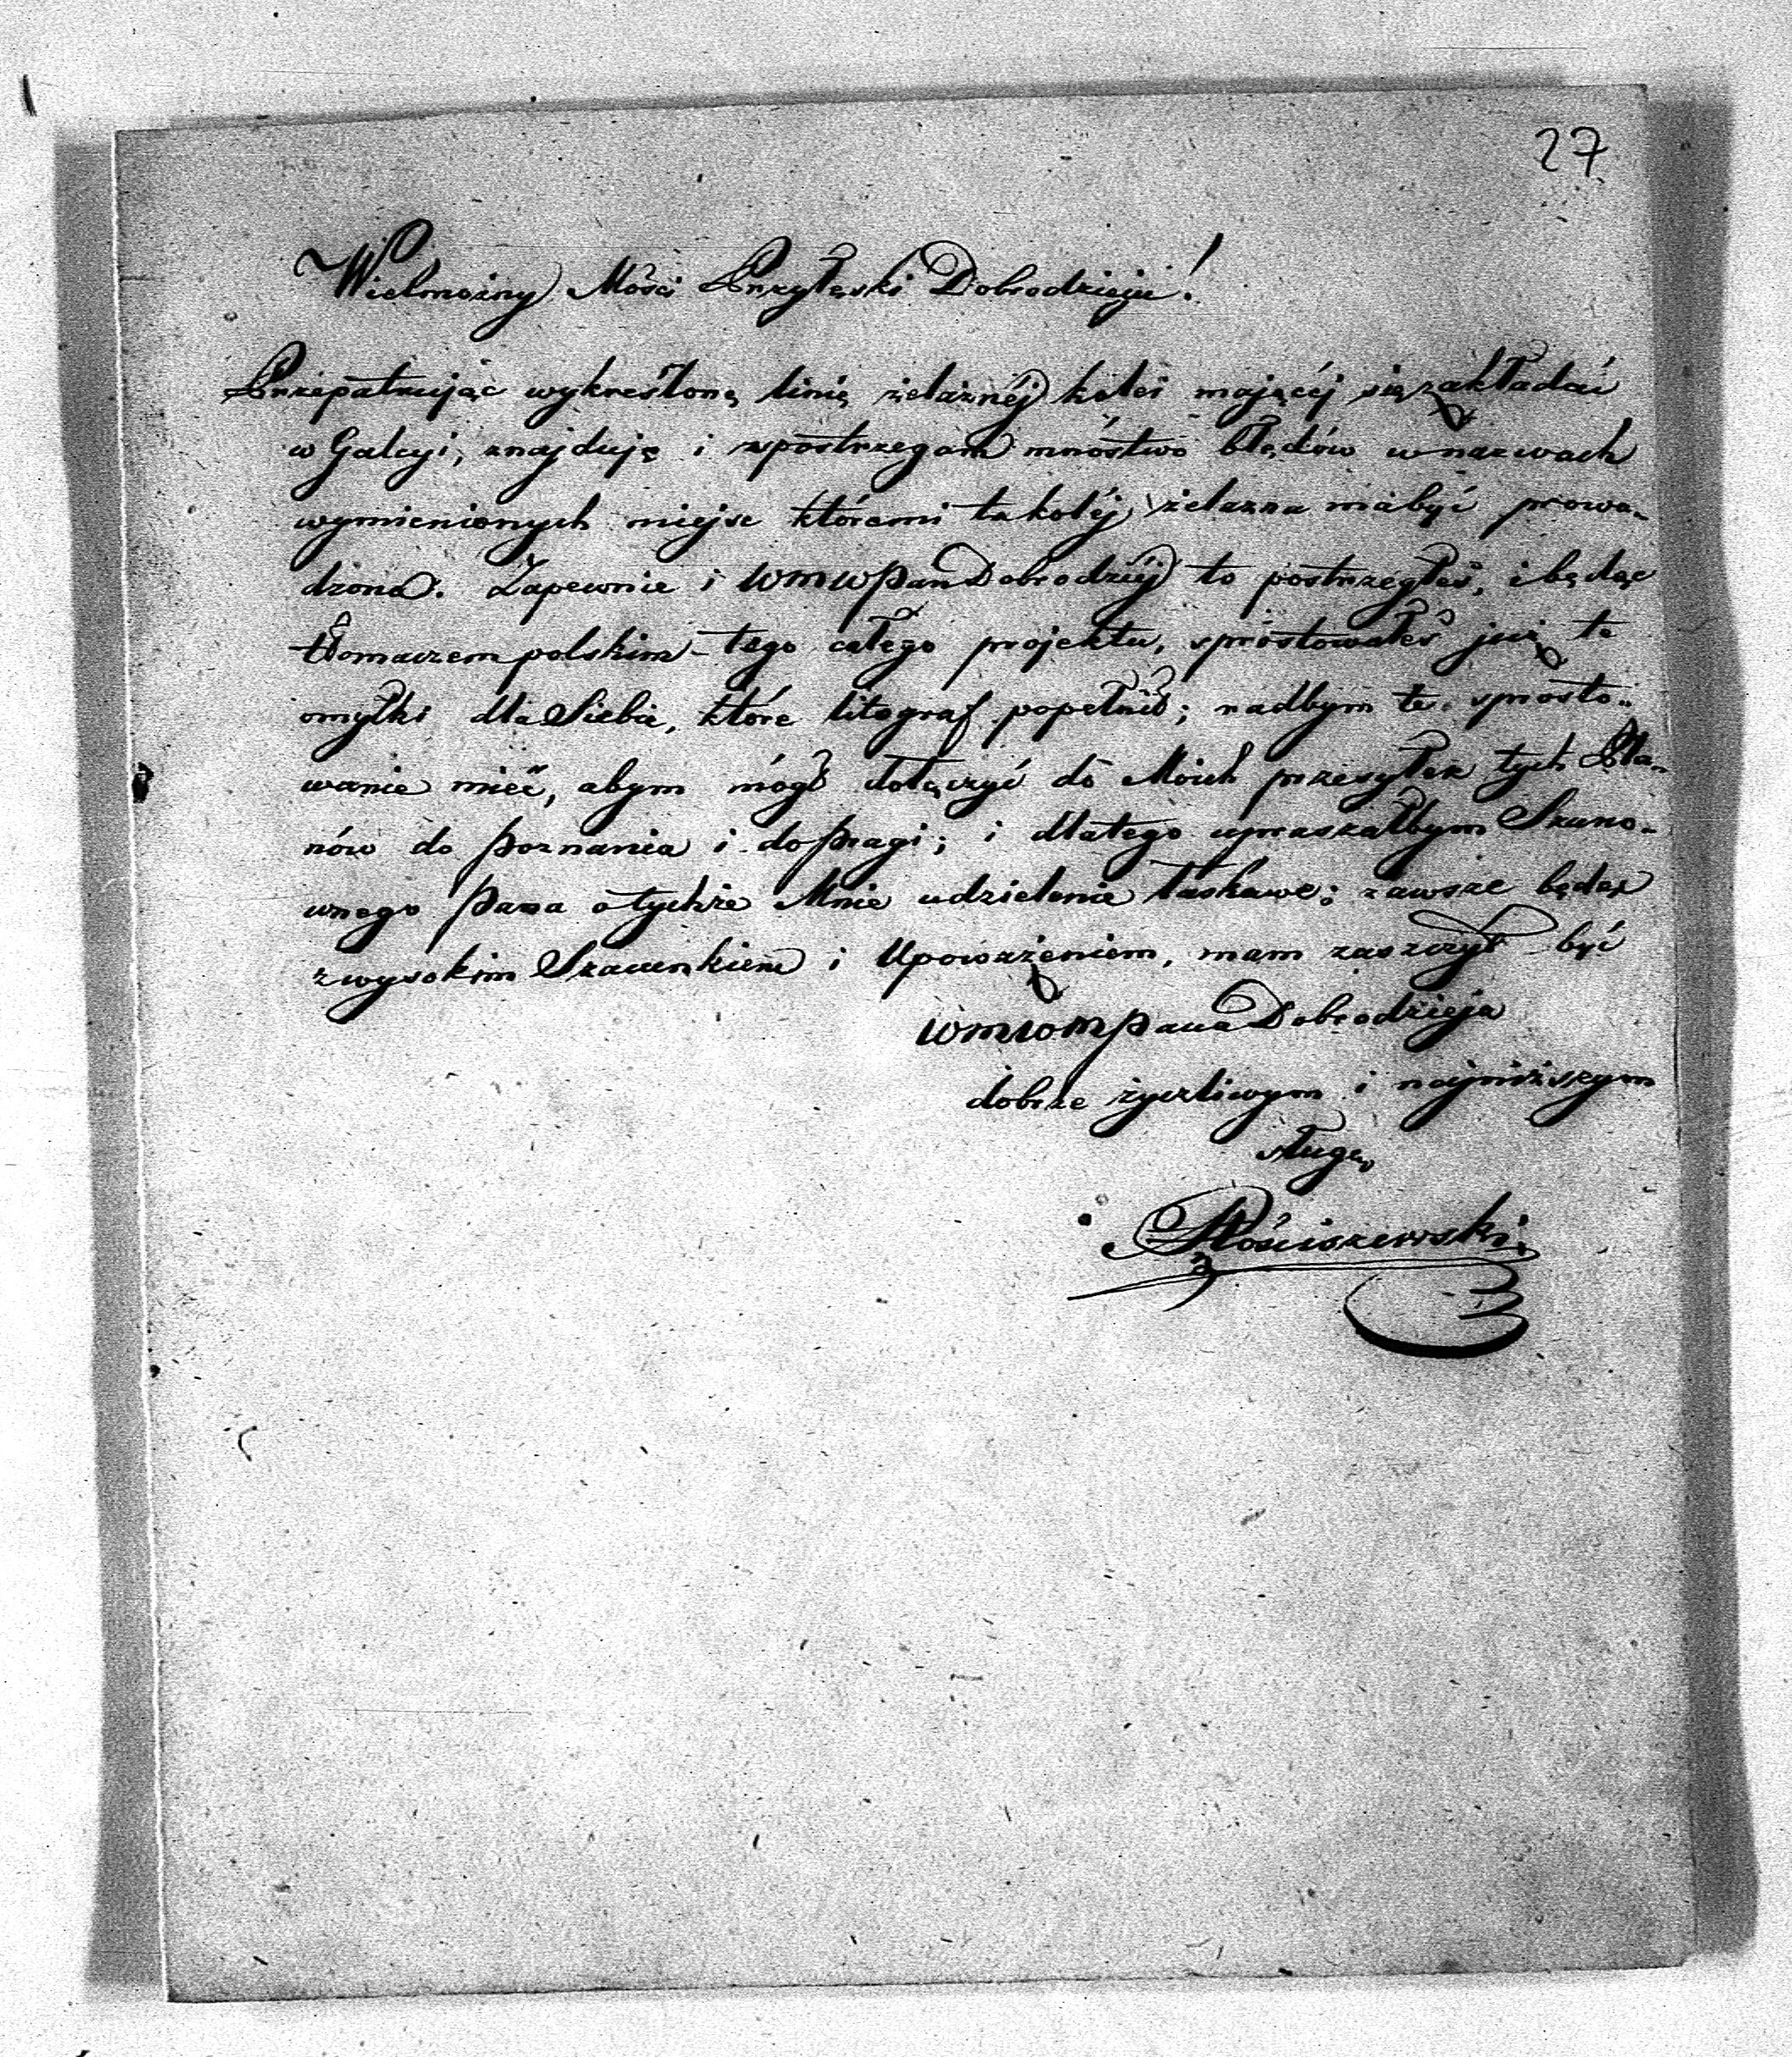 27
Wielmożny Mości Przyłęski Dobrodzieju!
Przepatrując wykreśloną linię żelaznéj kolei mającéj się zakładać
w Galicyi, znajduję i spostrzegam mnóstwo błędów w nazwach
wymienionych miejsc któremi ta koléj żelazna ma być prowa-
dzona. Zapewnie i WMWPan Dobrodziéj to postrzegłeś, i będąc
tłomaczem polskim tego całego projektu, sprostowałeś już te
omyłki dla Siebie, które litograf popełnił; radbym te sprosto-
wanie mieć, abym mógł dołączyć do Moich przesyłek tych Pla-
nów do Poznania i do Pragi; i dlatego upraszałbym Szano-
wnego Pana o tychże Mnie udzielenie łaskawe; zawsze będąc
z wysokim Szacunkiem i Upoważeniem, mam zaszczyt być
WMWM Pana Dobrodzieja
dobrze życzliwym i najniższym
sługą
Rościszewski